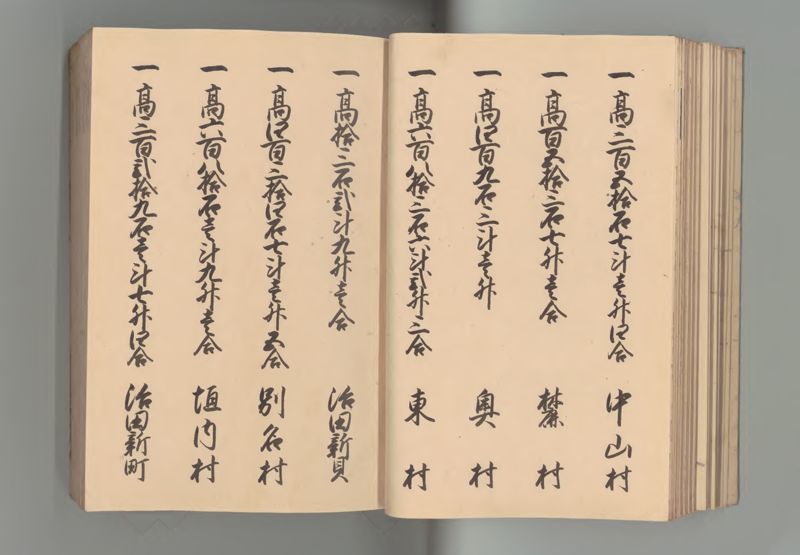 一 高三百五拾石七斗壱升四合 中山村
一 高百五拾三石七升壱合 麓村
一 高四百九石三斗壱升 奥村
一 高六百八拾三石六斗弐升三合 東村
一 高拾三石弐斗九升壱合 治田新貝
一 高四百三拾四石七斗壱升五合 別名村
一 高六百八拾石壱斗九升壱合 垣内村
一 高三百弐拾九石壱斗七升四合 治田新町